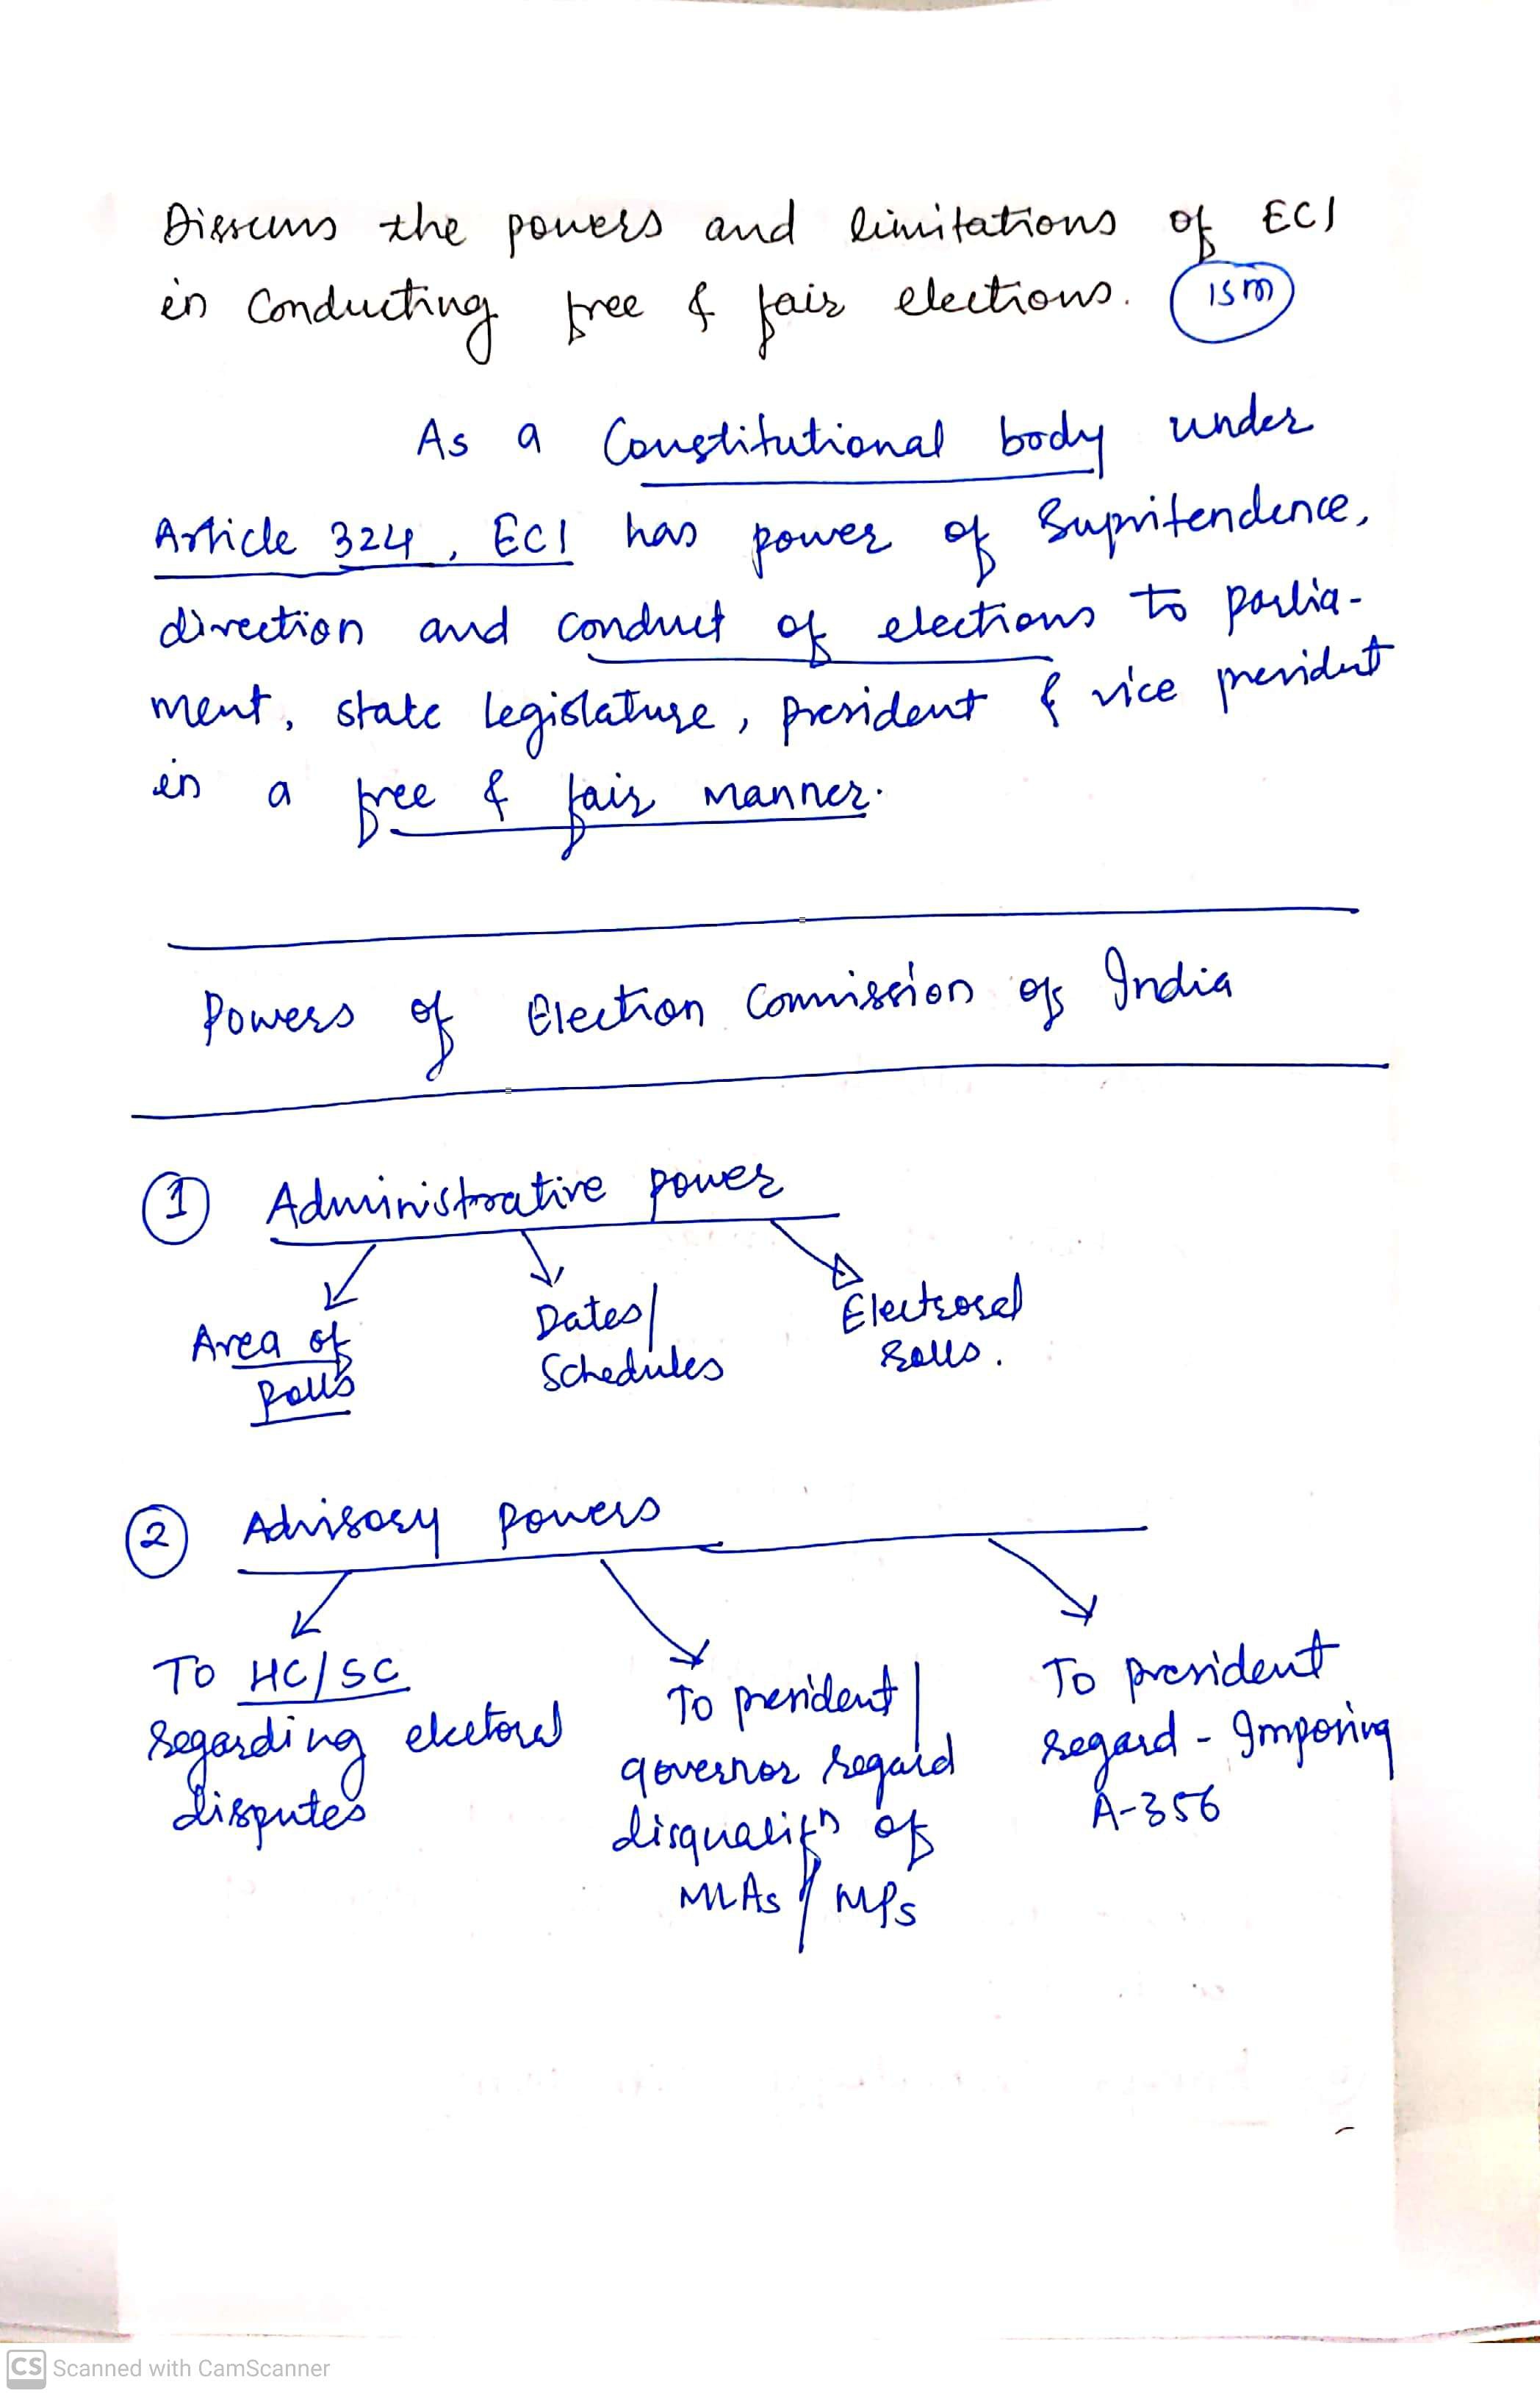 Discuss the powers and limitations of ECI
in Conducting free & fair elections. 15m
As a Constitutional body under
Article 324, ECI has power of Supritendence,
direction and conduct of elections to parlia-
ment, state legislature, president & vice president
in a free & fair manner.
Powers of Election Commission of India
1 Administrative power
Area of Polls
Dates/ Schedules
Electoral Rolls.
2 Advisory powers
To HC/SC regarding electoral disputes
To president/ governor regard disqualifn of MLAs / MPs
To president regard - Imposing A-356
CS Scanned with CamScanner